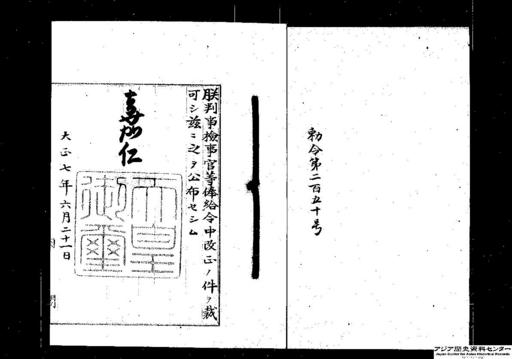 勅令第二百五十号
朕判事検事官等俸給令中改正ノ件ヲ裁
可シ茲ニ之ヲ公布セシム
嘉仁
天皇御璽
大正七年六月二十一日
アジア歴史資料センター
Japan Center for Asian Historical Records